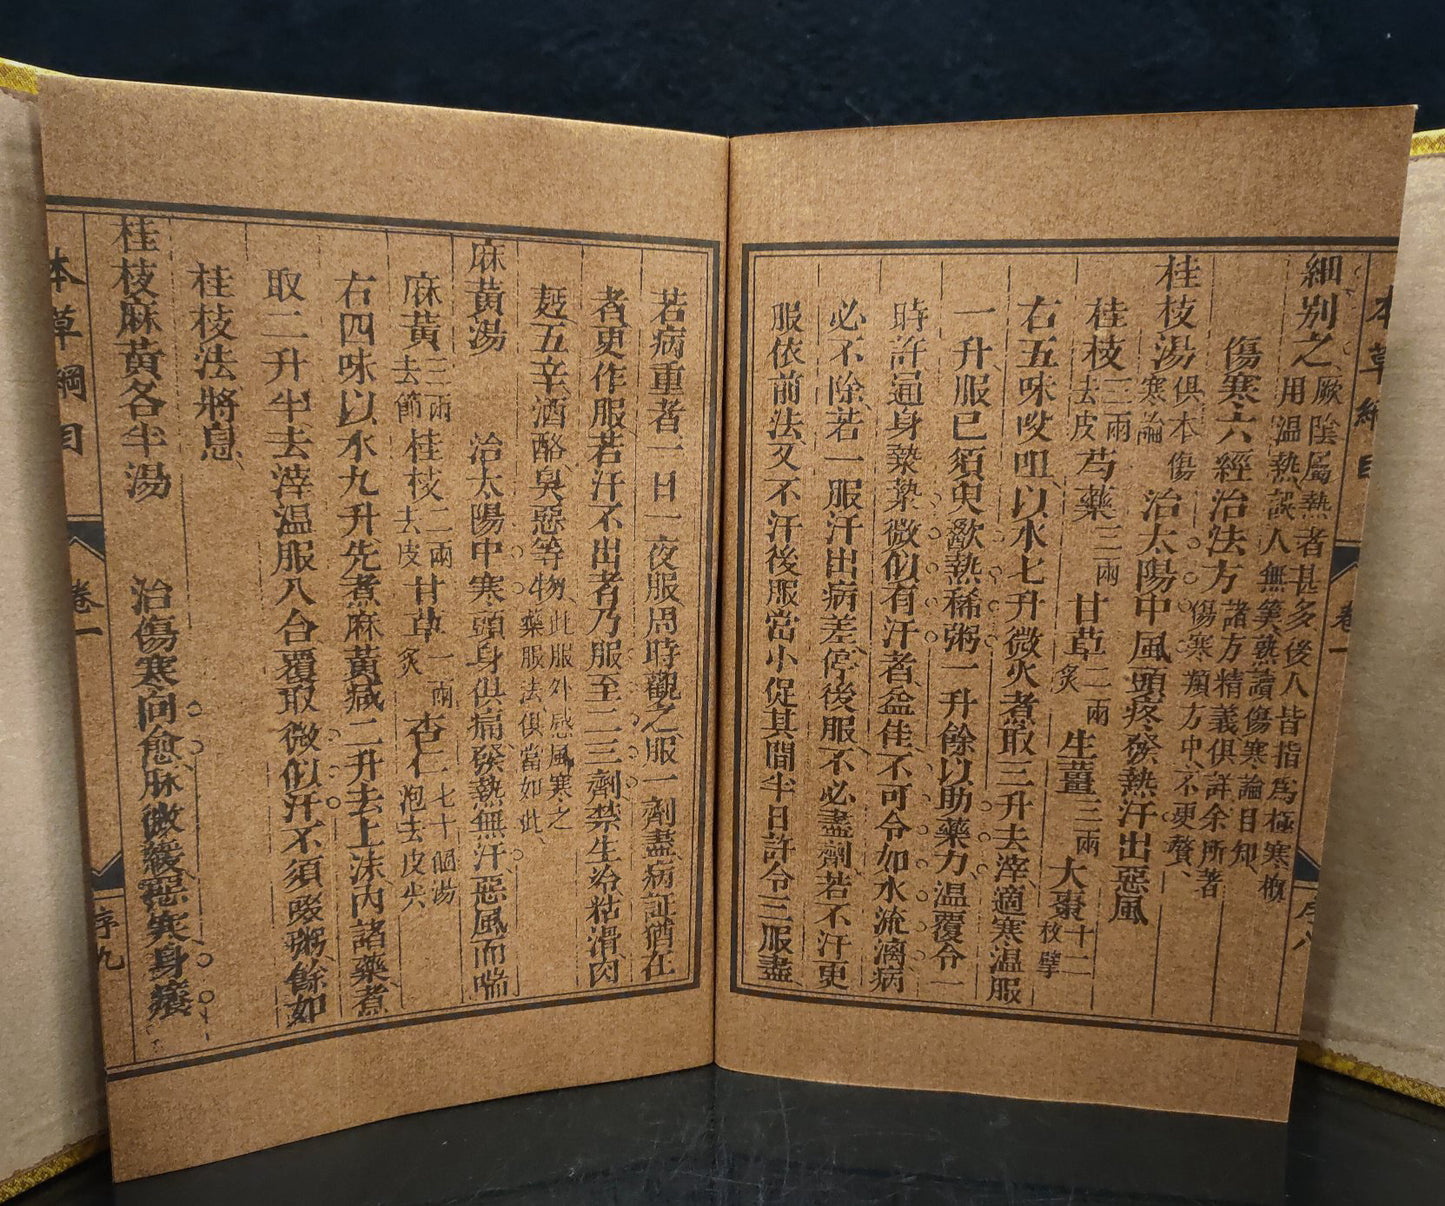 本草綱目
卷一
序八
細別之厥陰屬熱者甚多後人皆指爲極寒概
用溫熱誤人無筭熟讀傷寒論自知
傷寒六經治法方諸方精義俱詳余所著
傷寒類方中不更贅
桂枝湯俱本傷
寒論
治太陽中風頭疼發熱汗出惡風
桂枝三兩
去皮
芍藥三兩甘草二兩
炙
生薑三兩大棗十二
枚擘
右五味㕮咀以水七升微火煮取三升去滓適寒溫服
一升服已須臾歠熱稀粥一升餘以助藥力溫覆令一
時許遍身漐漐微似有汗者益佳不可令如水流漓病
必不除若一服汗出病差停後服不必盡劑若不汗更
服依前法又不汗後服當小促其間半日許令三服盡
若病重者一日一夜服周時觀之服一劑盡病証猶在
者更作服若汗不出者乃服至二三劑禁生冷粘滑肉
麪五辛酒酪臭惡等物此服外感風寒之
藥服法俱當如此
麻黃湯
治太陽中寒頭身俱痛發熱無汗惡風而喘
麻黃三兩
去節
桂枝二兩
去皮
甘草一兩
炙
杏仁七十個湯
泡去皮尖
右四味以水九升先煮麻黃減二升去上沫內諸藥煮
取二升半去滓溫服八合覆取微似汗不須啜粥餘如
桂枝法將息
桂枝麻黃各半湯
治傷寒向愈脉微緩惡寒身癢
本草綱目
卷一
序九